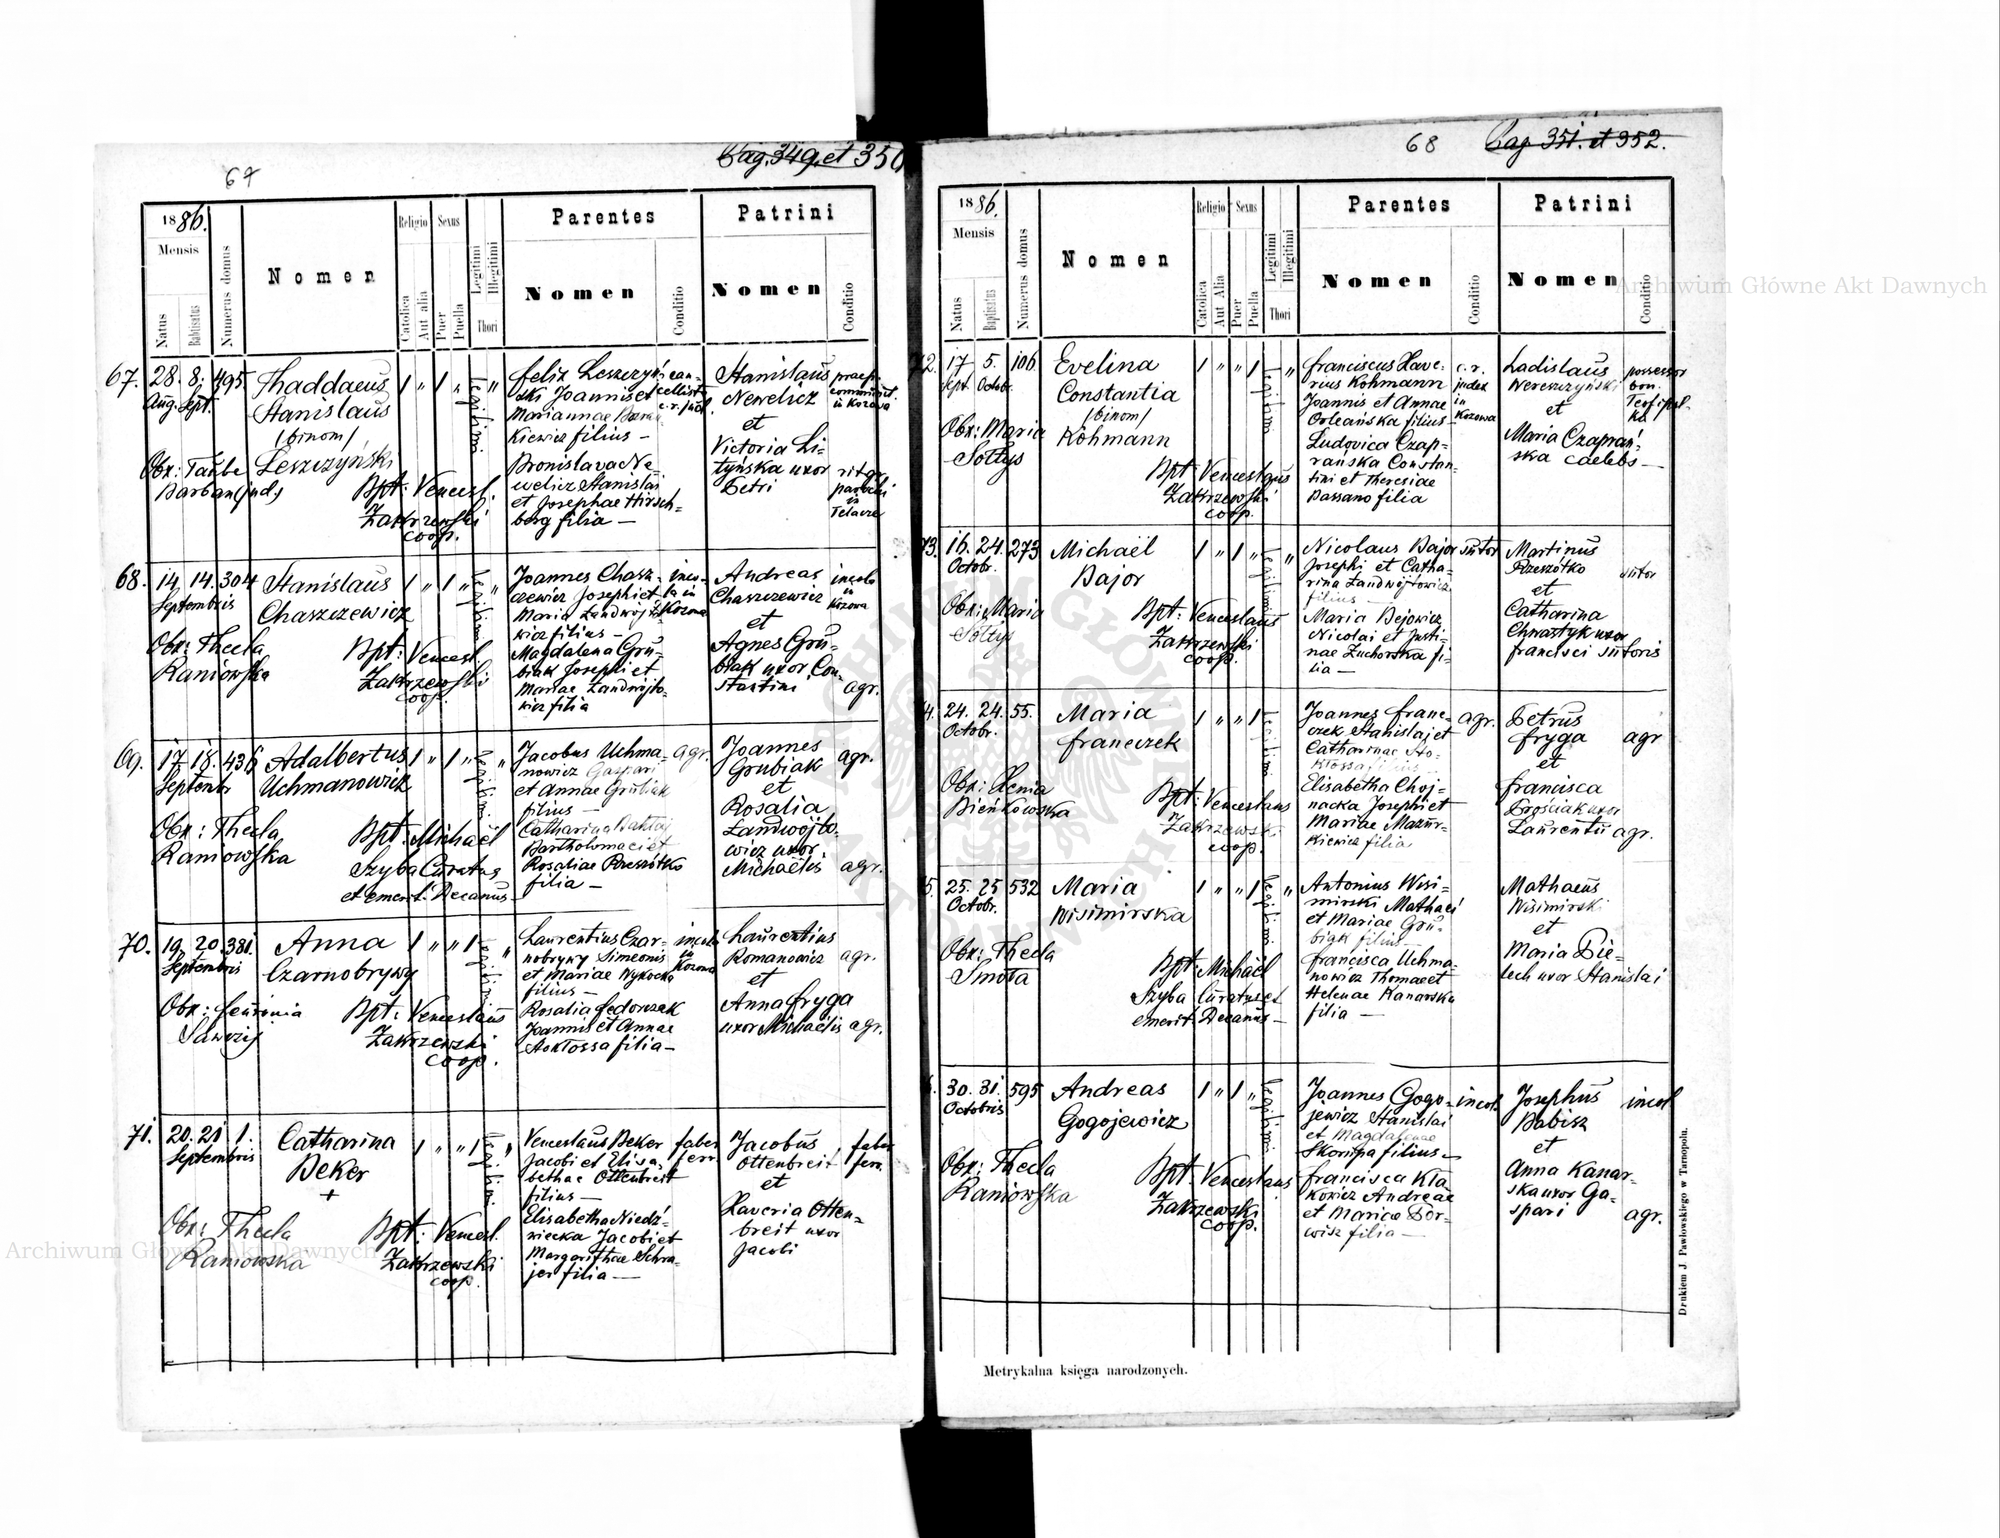 67
Pag. 349. et 350
1886.
Mensis
Natus
Babtisatus
Numerus domus
Nomen
Religio
Catolica
Aut alia
Sexus
Puer
Puella
Legitimi
Illegitimi
Thori
Parentes
Nomen
Conditio
Patrini
Nomen
Conditio
67. 28. 8. 495
Aug. Sept.
Thaddaeus
Stanislaus
/binom/
Leszczyński
Obx: Taube
Barban (jud)
Bpt: Vencesl.
Zakrzewski
coop.
1 " 1 " Legitimi "
Felix Leszczyń-
ski Joannis et
Mariannae
kiewicz filius —
Bronislava Ne-
welicz Stanislai
et Josephae Hirsch-
berg filia —
can-
cellista
c. r. jud.
Stanislaus
Newelicz
et
Victoria Li-
tyńska uxor
Petri
in Kozowa
in
68. 14. 14. 304
Septembris
Stanislaus
Chaszczewicz
Obx: Thecla
Raniowska
Bpt: Vencesl
Zakrzewski
coop.
1 " 1 " Legitimi "
Joannes Chasz-
czewicz Josephi et
Maria Landwójto-
wicz filius —
Magdalena Gru-
biak Josephi et
Mariae Landwójto-
wicz filia
inco-
la in
Kozowa
Andreas
Chaszczewicz
et
Agnes Gru-
biak uxor Con-
stantini
incola
in
Kozowa
agr.
69. 17. 18. 436
Septembr
Adalbertus
Uchmanowicz
Obx: Thecla
Raniowska
Bpt: Michaël
Szyba Curatus
et emerit. Decanus
1 " 1 " Legitimi "
Jacobus Uchma-
nowicz Gaspari
et Annae Grubiak
filius —
Catharina Baktaj
Bartholomaei et
Rosaliae Rzeszótko
filia —
agr.
Joannes
Grubiak
et
Rosalia
Landwójto-
wicz uxor
Michaëlis
agr.
agr.
70. 19. 20. 381
Septembris
Anna
Czarnobrywy
Obx: Feuronia
Sawczij
Bpt: Venceslaus
Zakrzewski
coop.
1 " " 1 Legitimi "
Laurentius Czar-
nobrywy Simeonis
et Mariae Wykocka
filius —
Rosalia Fedorczak
Joannis et Annae
Stokłossa filia —
incola
in
Kozowa
Laurentius
Romanowicz
et
Anna Fryga
uxor Michaëlis
agr.
agr.
71. 20. 21. 1.
Septembris
Catharina
Beker
+
Obx: Thecla
Raniowska
Bpt: Vencesl.
Zakrzewski
coop.
1 " " 1 Legitimi "
Venceslaus Beker
Jacobi et Elisa-
bethae Ottenbreit
filius —
Elisabetha Niedź-
wiecka Jacobi et
Margarithae Schra-
jer filia —
faber
ferr.
Jacobus
Ottenbreit
et
Xaveria Otten-
breit uxor
Jacobi
faber
ferr.
68
Pag. 351. et 352.
1886.
Mensis
Natus
Baptisatus
Numerus domus
Nomen
Religio
Catolica
Aut Alia
Sexus
Puer
Puella
Legitimi
Illegitimi
Thori
Parentes
Nomen
Conditio
Patrini
Nomen
Conditio
72. 17 5. 106.
Sept. Octobr.
Evelina
Constantia
/binom/
Kohmann
Obx: Maria
Sołtys
Bpt: Venceslaus
Zakrzewski
coop.
1 " " 1 Legitimi
Franciscus Xave-
rius Kohmann
Joannis et Annae
Orleańska filius —
Ludovica Czap-
rańska Constan-
tini et Theresiae
Bassano filia
c. r.
judex
in
Kozowa
Ladislaus
Wereszczyński
et
Maria Czaprań-
ska caelebs —
possessor
bon.
73. 16. 24. 273
Octobr.
Michaël
Bajor
Obx: Maria
Sołtys
Bpt: Venceslaus
Zakrzewski
coop.
1 " 1 " Legitimi "
Nicolaus Bajor
Josephi et Catha-
rina Landwójtowicz
filius —
Maria Bejowicz
Nicolai et Justi-
nae Zuchorska fi-
lia —
sutor
Martinus
Rzeszótko
et
Catharina
Chwastyk uxor
Francisci sutoris
sutor
4. 24. 24. 55.
Octobr.
Maria
Franczek
Obx: Xenia
Bieńkowska
Bpt: Venceslaus
Zakrzewski
coop.
1 " " 1 Legitimi
Joannes Franc-
czek Stanislai et
Catharinae Sto-
kłossa filius
Elisabetha Choj-
nacka Josephi et
Mariae Mazur-
kiewicz filia
agr.
Petrus
Fryga
et
Francisca
Prościak uxor
Laurentii agr.
agr
5. 25. 25 532
Octobr.
Maria
Wisimirska
Obx: Thecla
Smoła
Bpt: Michaël
Szyba Curatus et
emerit. Decanus —
1 " " 1 Legitim. "
Antonius Wisi-
mirski Mathaei
et Mariae Gru-
biak filius
Francisca Uchma-
nowicz Thomae et
Helenae Kanarska
filia —
Mathaeus
Wisimirski
et
Maria Pie-
tech uxor Stanislai
6. 30. 31. 595
Octobris
Andreas
Gogojewicz
Obx: Thecla
Raniowska
Bpt: Venceslaus
Zakrzewski
coop.
1 " 1 " Legitimi
Joannes Gogo-
jewicz Stanislai
et Magdalenae
Skoripa filius —
Francisca Kla-
kowicz Andreae
et Mariae Bor-
wisz filia —
incol.
Josephus
Babisz
et
Anna Kanar-
ska uxor Ga-
spari
incol
agr.
Metrykalna księga narodzonych.
Drukiem J. Pawłowskiego w Tarnopolu.
Archiwum Główne Akt Dawnych
Archiwum Główne Akt Dawnych
ARCHIWUM GŁÓWNE AKT DAWNYCH